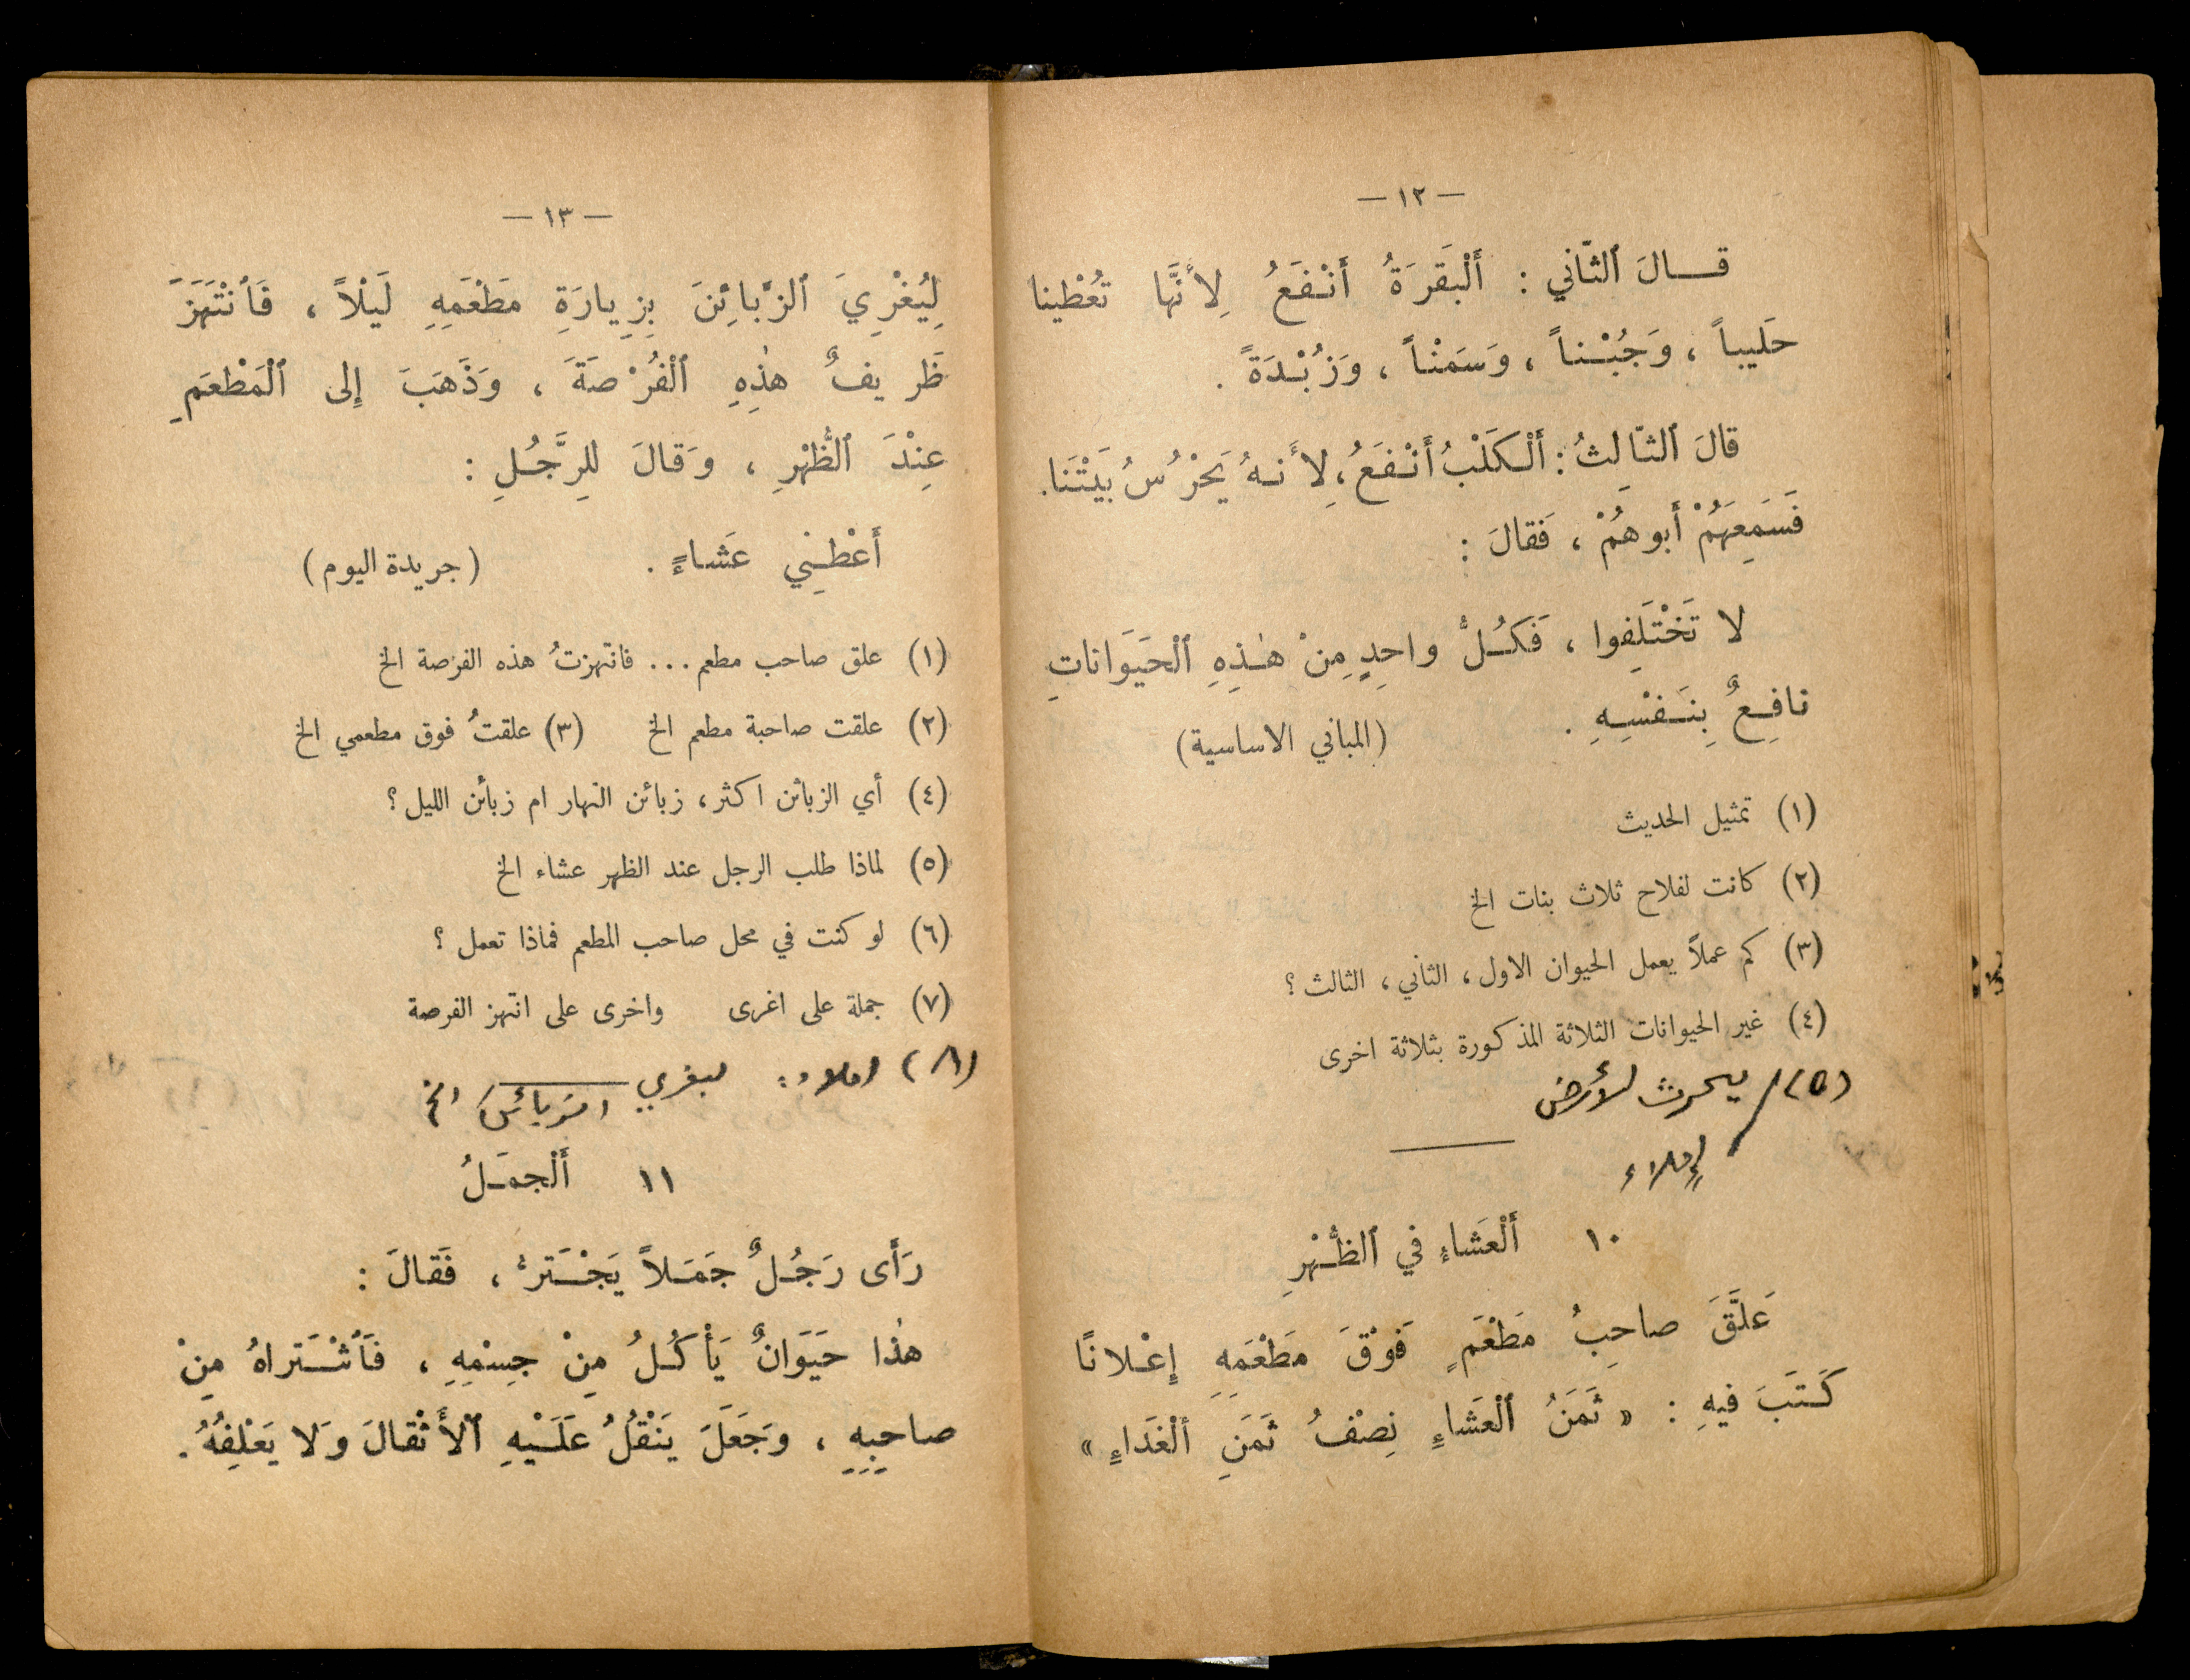 — ١٢ —
قــالَ ٱلثّاني : أَلْبَقَرَةُ أَنْفَعُ لِأَنَّها تُعْطينا
حَليباً ، وَجُبْناً ، وَسَمْناً ، وَزُبْدَةً .
قالَ ٱلثّالِثُ : أَلْكَلْبُ أَنْفَعُ ، لِأَنهُ يَحْرُسُ بَيْتَنا .
فَسَمِعَهُمْ أَبوهُمْ ، فَقالَ :
لا تَخْتَلِفوا ، فَكُلُّ واحِدٍ مِنْ هٰذِهِ ٱلْحَيَوَاناتِ
نافِعٌ بِنَفْسِهِ . (المباني الاساسية)
(١) تمثيل الحديث
(٢) كانت لفلاح ثلاث بنات الخ
(٣) كم عملاً يعمل الحيوان الاول ، الثاني ، الثالث ؟
(٤) غير الحيوانات الثلاثة المذكورة بثلاثة اخرى
(٥) يحرث الأرض
إملاء
١٠ أَلْعَشاءِ في ٱلظُّهْرِ
عَلَّقَ صاحِبُ مَطْعَمٍ فَوْقَ مَطْعَمِهِ إِعْلانًا
كَتَبَ فيهِ : « ثَمَنُ ٱلْعَشاءِ نِصْفُ ثَمَنِ ٱلْغَدَاءِ »
— ١٣ —
لِيُغْرِيَ ٱلزَّبائِنَ بِزِيارَةِ مَطْعَمِهِ لَيْلاً ، فَٱنْتَهَزَ
ظَريفٌ هٰذِهِ ٱلْفُرْصَةَ ، وَذَهَبَ إِلى ٱلْمَطْعَمِ
عِنْدَ ٱلظُّهْرِ ، وَقالَ لِلرَّجُلِ :
أَعْطِني عَشاءً . (جريدة اليوم)
(١) علق صاحب مطعم ... فانتهزتُ هذه الفرصة الخ
(٢) علقت صاحبة مطعم الخ (٣) علقتُ فوق مطعمي الخ
(٤) أي الزبائن اكثر ، زبائن النهار ام زبائن الليل ؟
(٥) لماذا طلب الرجل عند الظهر عشاء الخ
(٦) لو كنت في محل صاحب المطعم فماذا تعمل ؟
(٧) جملة على اغرى واخرى على انتهز الفرصة
(٨) املاء : ليغري
الزبائن الخ
١١ أَلْجَمَلُ
رَأَى رَجُلٌ جَمَلاً يَجْتَرُّ ، فَقالَ :
هٰذا حَيَوَانٌ يَأْكُلُ مِنْ جِسْمِهِ ، فَٱشْتَراهُ مِنْ
صاحِبِهِ ، وَجَعَلَ يَنْقُلُ عَلَيْهِ ٱلْأَثْقالَ وَلا يَعْلِفُهُ .